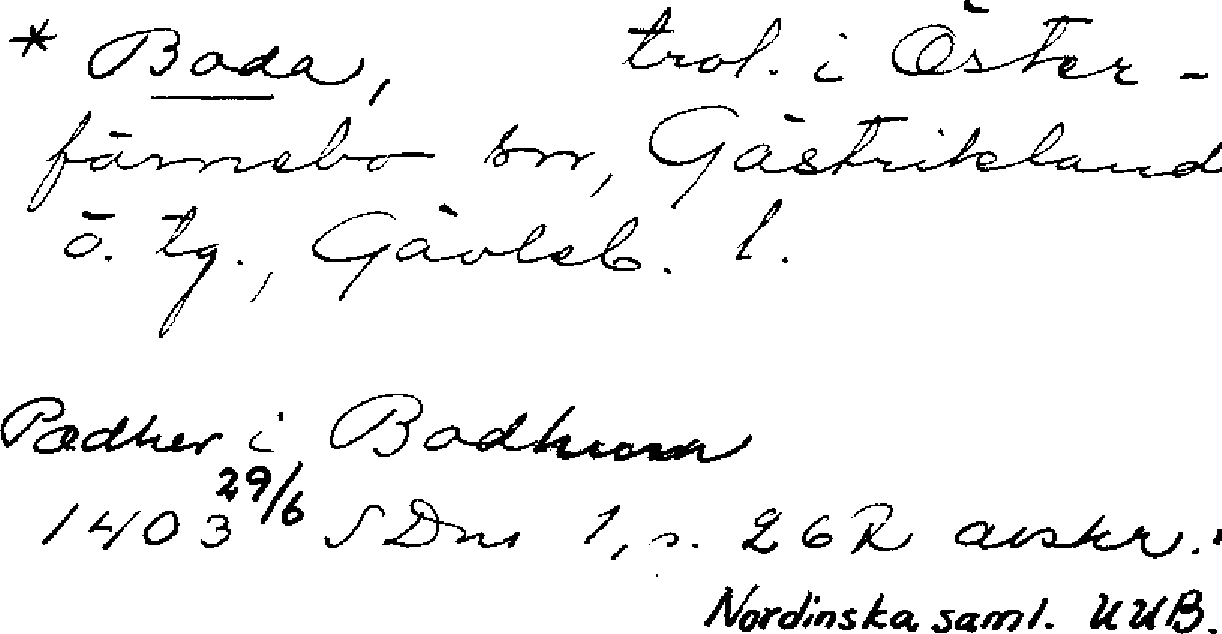 * Boda, trol. i Öster-
färnebo sn, Gästrikland
ö. tg., Gävleb. l.
Pædher i Bodhum
1403 29/6 SDns 1, s. 262 avskr.
Nordinska saml. UUB.